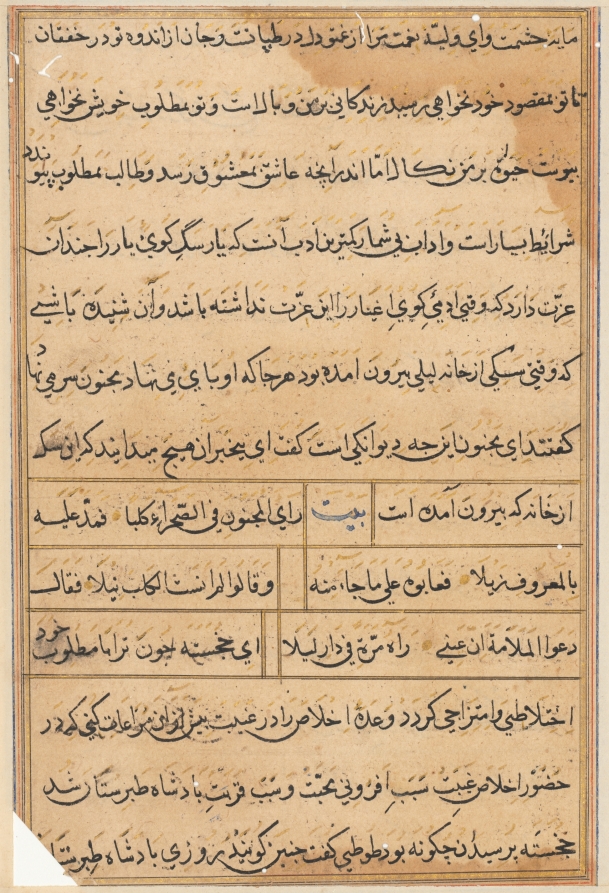 مایهٔ حشمت و ای ولیّهٔ نعمت مرا از غم تو دل در طپیانست و جان از اندوه تو در خفقان
تا تو بمقصود خود نخواهی رسید زندگانی بر من وبالست و تو بمطلوب خویش نخواهی
پیوست حیوة بر من نکال امّا اندرانچه عاشق بمعشوق رسد و طالب بمطلوب پیوندد
شرائط بسیار است و اداب بی شمار کمترین ادب آنست که یار سگِ کوی یار را چندان
عزّت دارد که وقتی ادمیِ کویِ اغیار را این عزّت نداشته باشد و آن شنیده باشی
که وقتی سگی از خانه لیلی بیرون امده بود هرجا که او پای می نهاد مجنون سر می نهاد
گفتند ای مجنون این چه دیوانگی است گفت ای بیخبران هیچ میدانید که این سگ
از خانه که بیرون آمده است بیت رای المجنون فی الصّحراء کلبا فمدّ علیه
بالمعروف زیلا فعابوه علی ما جاء منه وقالوا لم انست الکلب نیلا فقال
دعوا الملامة ان عینی راه مرّة فی دار لیلا ای خجسته چون ترا با مطلوب خود
اختلاطی و امتزاجی گردد وعده اخلاص را در غیبت بیش از ان مراعات کنی که در
حضور اخلاص غیبت سبب افزونی محبّت و سبب قربت پادشاه طبرستان شد
خجسته پرسید ان چگونه بود طوطی گفت چنین گویند روزی پادشاه طبرستان